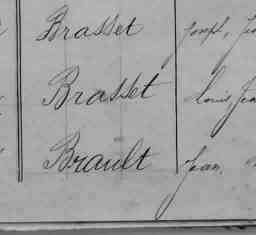 Brasset Joseph,
Brasset Louis,
Brault Jean,